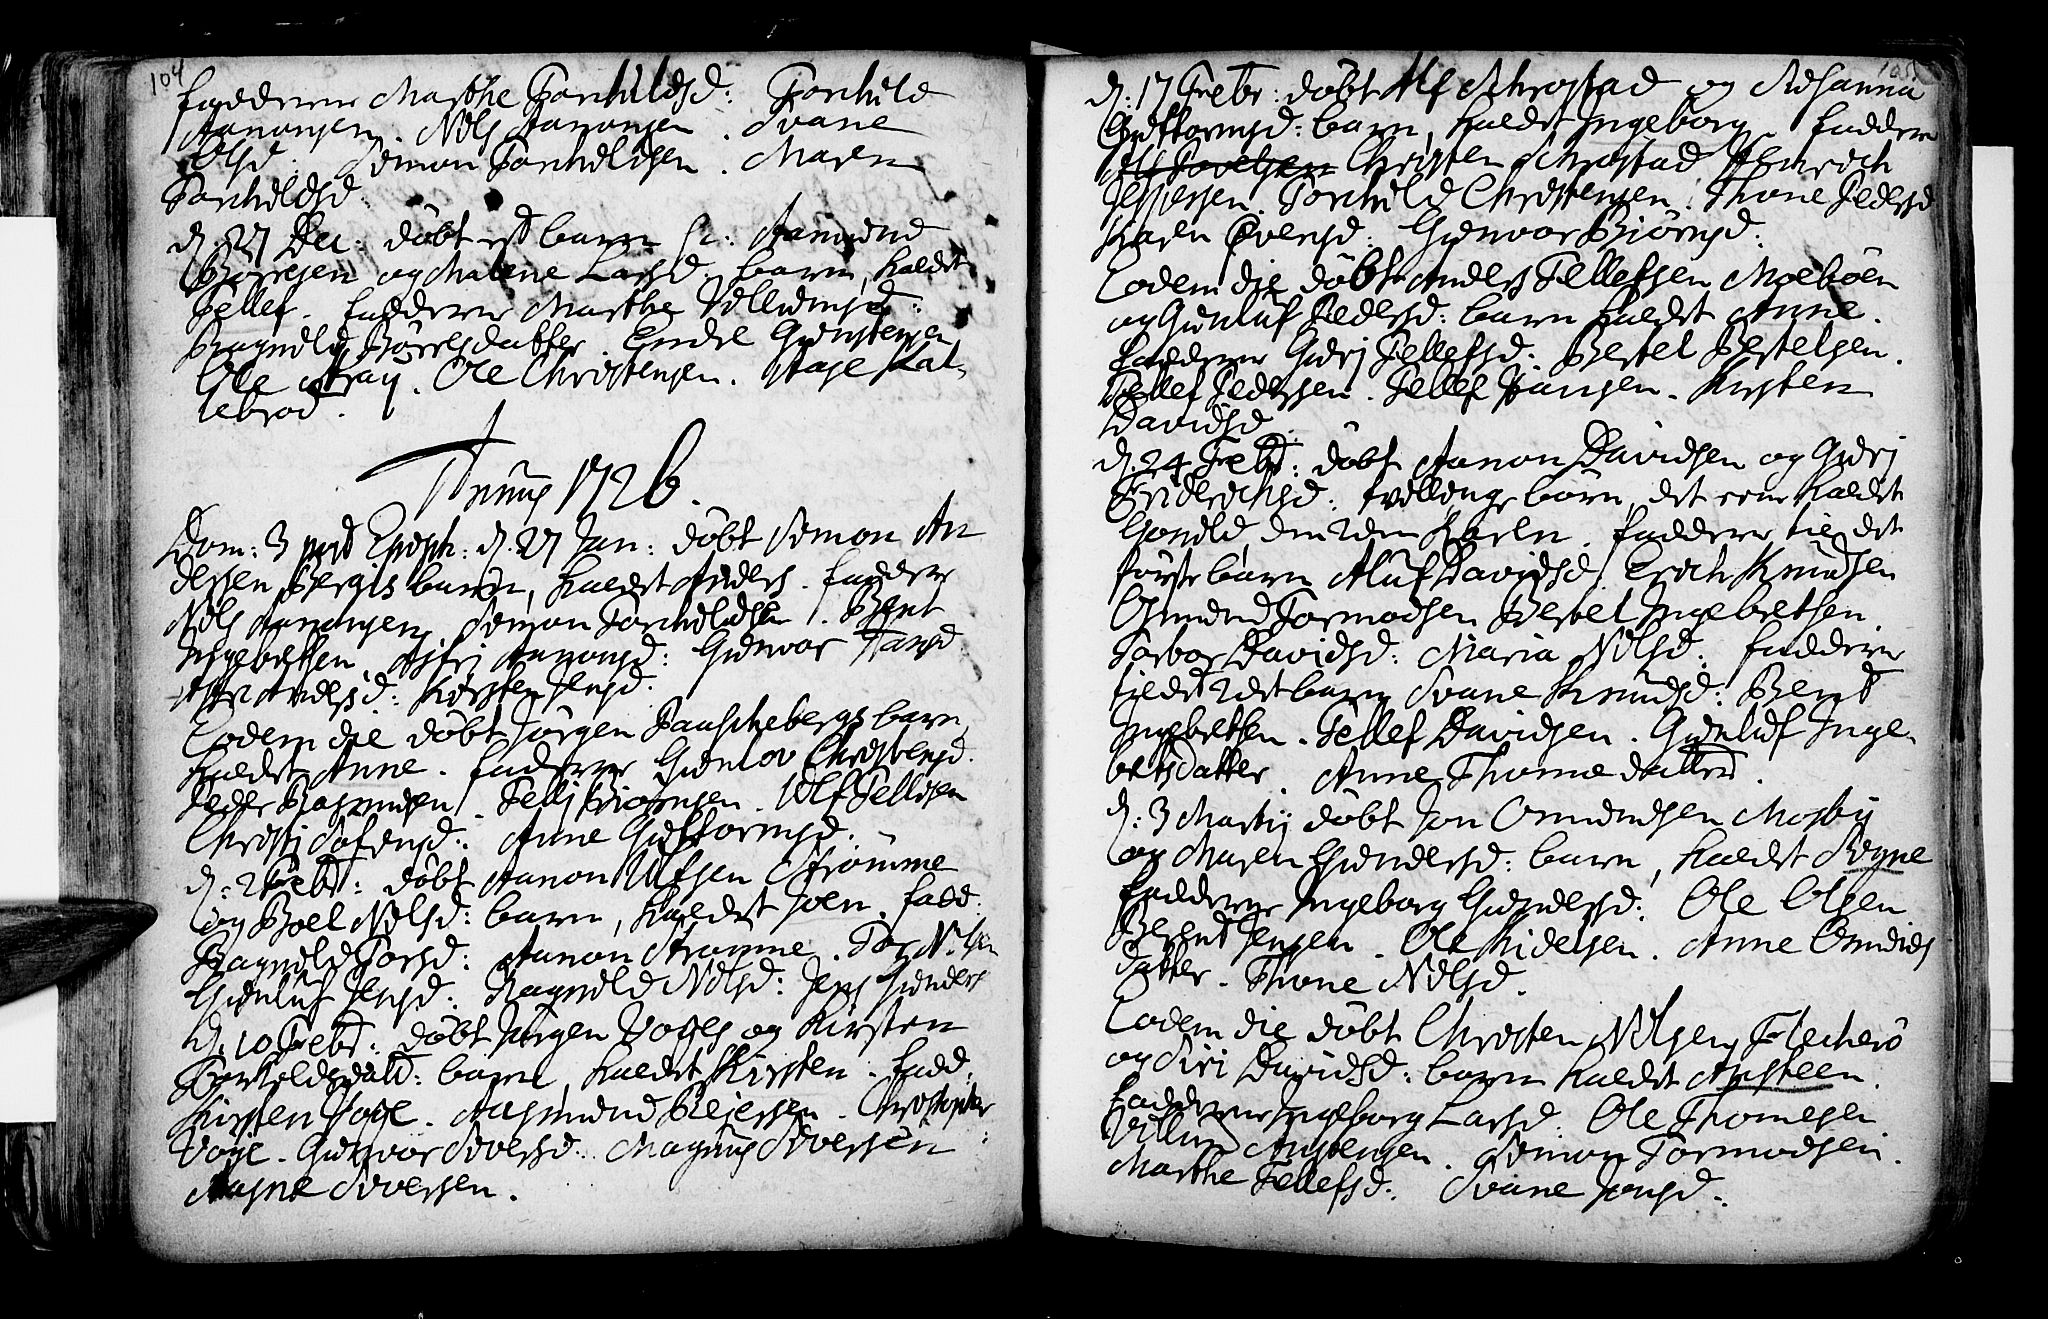 104
faddere Marthe Torchildsd: Torchild
Aanonsen. Nils Aanonsen. Svane
Olsd: Simon Torchildsen. Maren
Torchildsd.
d. 27 Dec: døbt et barn Aanund
Børresen og Malene Larsd. barn, kaldet
Tellef. faddere Marthe Villumsd:
Ragnild Børresdatter. Endre Gunstensen
Ole Aray. Ole Christensen. Aage Kal-
lebrod.
Annus 1726.
Dom: 3 post Epiph: d. 27 Jan: døbt Simon An
dersen Bergis barn, kaldet Anders. faddere
Nils Aanonsen. Simon Torchildsen. Bent
Ingebretsen. Asfri Aanonsd: Gunvor
Andersd: Kirsten Jensd.
Eodem die døbt Jørgen Pauschebergs barn,
kaldet Anne. faddere Gunlov Christensd.
Peder Rasmusen. Telli Biørnsen. Ulf Tellisen
Christi Sofrensd: Anne Guttormsd.
d: 2 Febr: døbt Aanon Ulfsen Strømme
og Boel Nilsd: barn, kaldet Joen. fadd:
Ragnild Torsd: Aanon Strømme. Tor Nilsen
Gunluf Jensd: Ragnild Nilsd: Jens Gunders
d. 10 Febr: døbt Jørgen Voges og Kirsten
Torkildsdatt: barn, kaldet Kirsten. fadd:
Kirsten Voge. Aasmund Reiersen. Christopher
Voge. Gunvor Siversd: Magnus Siversen
Aagne Siversen.
105
d: 17 Febr: døbt Alf Schrostad og Susanna
Guttormsd: barn, kaldet Ingeborg. faddere
Christen Schrostad Henrich
Jespersen. Torchild Christensen. Thone Pedersd
Karen Evensd: Gunvor Biørnsd:
Eodem die døbt Anders Tellefsen Moebøen
og Gunluf Pedersd: barn kaldet Anne.
faddere Guri Tellefsd: Bertel Bertelsen.
Tellef Pedersen. Tellef Hansen. Kirsten
Davidsd.
d. 24 Febr: døbt Aanon Davidsen og Guri
Friderichsd: tvillinge børn, det eene kaldet
Gonild den 2den Karen. faddere til det
første barn Aluf Davidsd. Erich Knudsen
Omund Tormodsen Bertel Ingebretsen.
Torbor Davidsd: Maria Nilsd: faddere
til det 2det barn Svane Knudsd: Bent
Ingebretsen. Tellef Davidsen. Gunluf Inge-
bretsdatter. Anne Thomædatter.
d: 3 Martij døbt Jon Omundsen Mosby
og Maren Gundersd: barn, kaldet Signe
faddere Ingeborg Gundersd: Ole Olsen
Berent Jensen. Ole Kidelsen. Anne Omunds
datter. Thone Nilsd.
Eodem die døbt Christen Nilsen Flecherø
og Siri Davidsd: barn kaldet Austeen.
faddere Ingeborg Larsd. Ole Thomesen
Villum Austensen. Simon Tormodsen.
Marthe Tellefsd: Svane Jonsd.